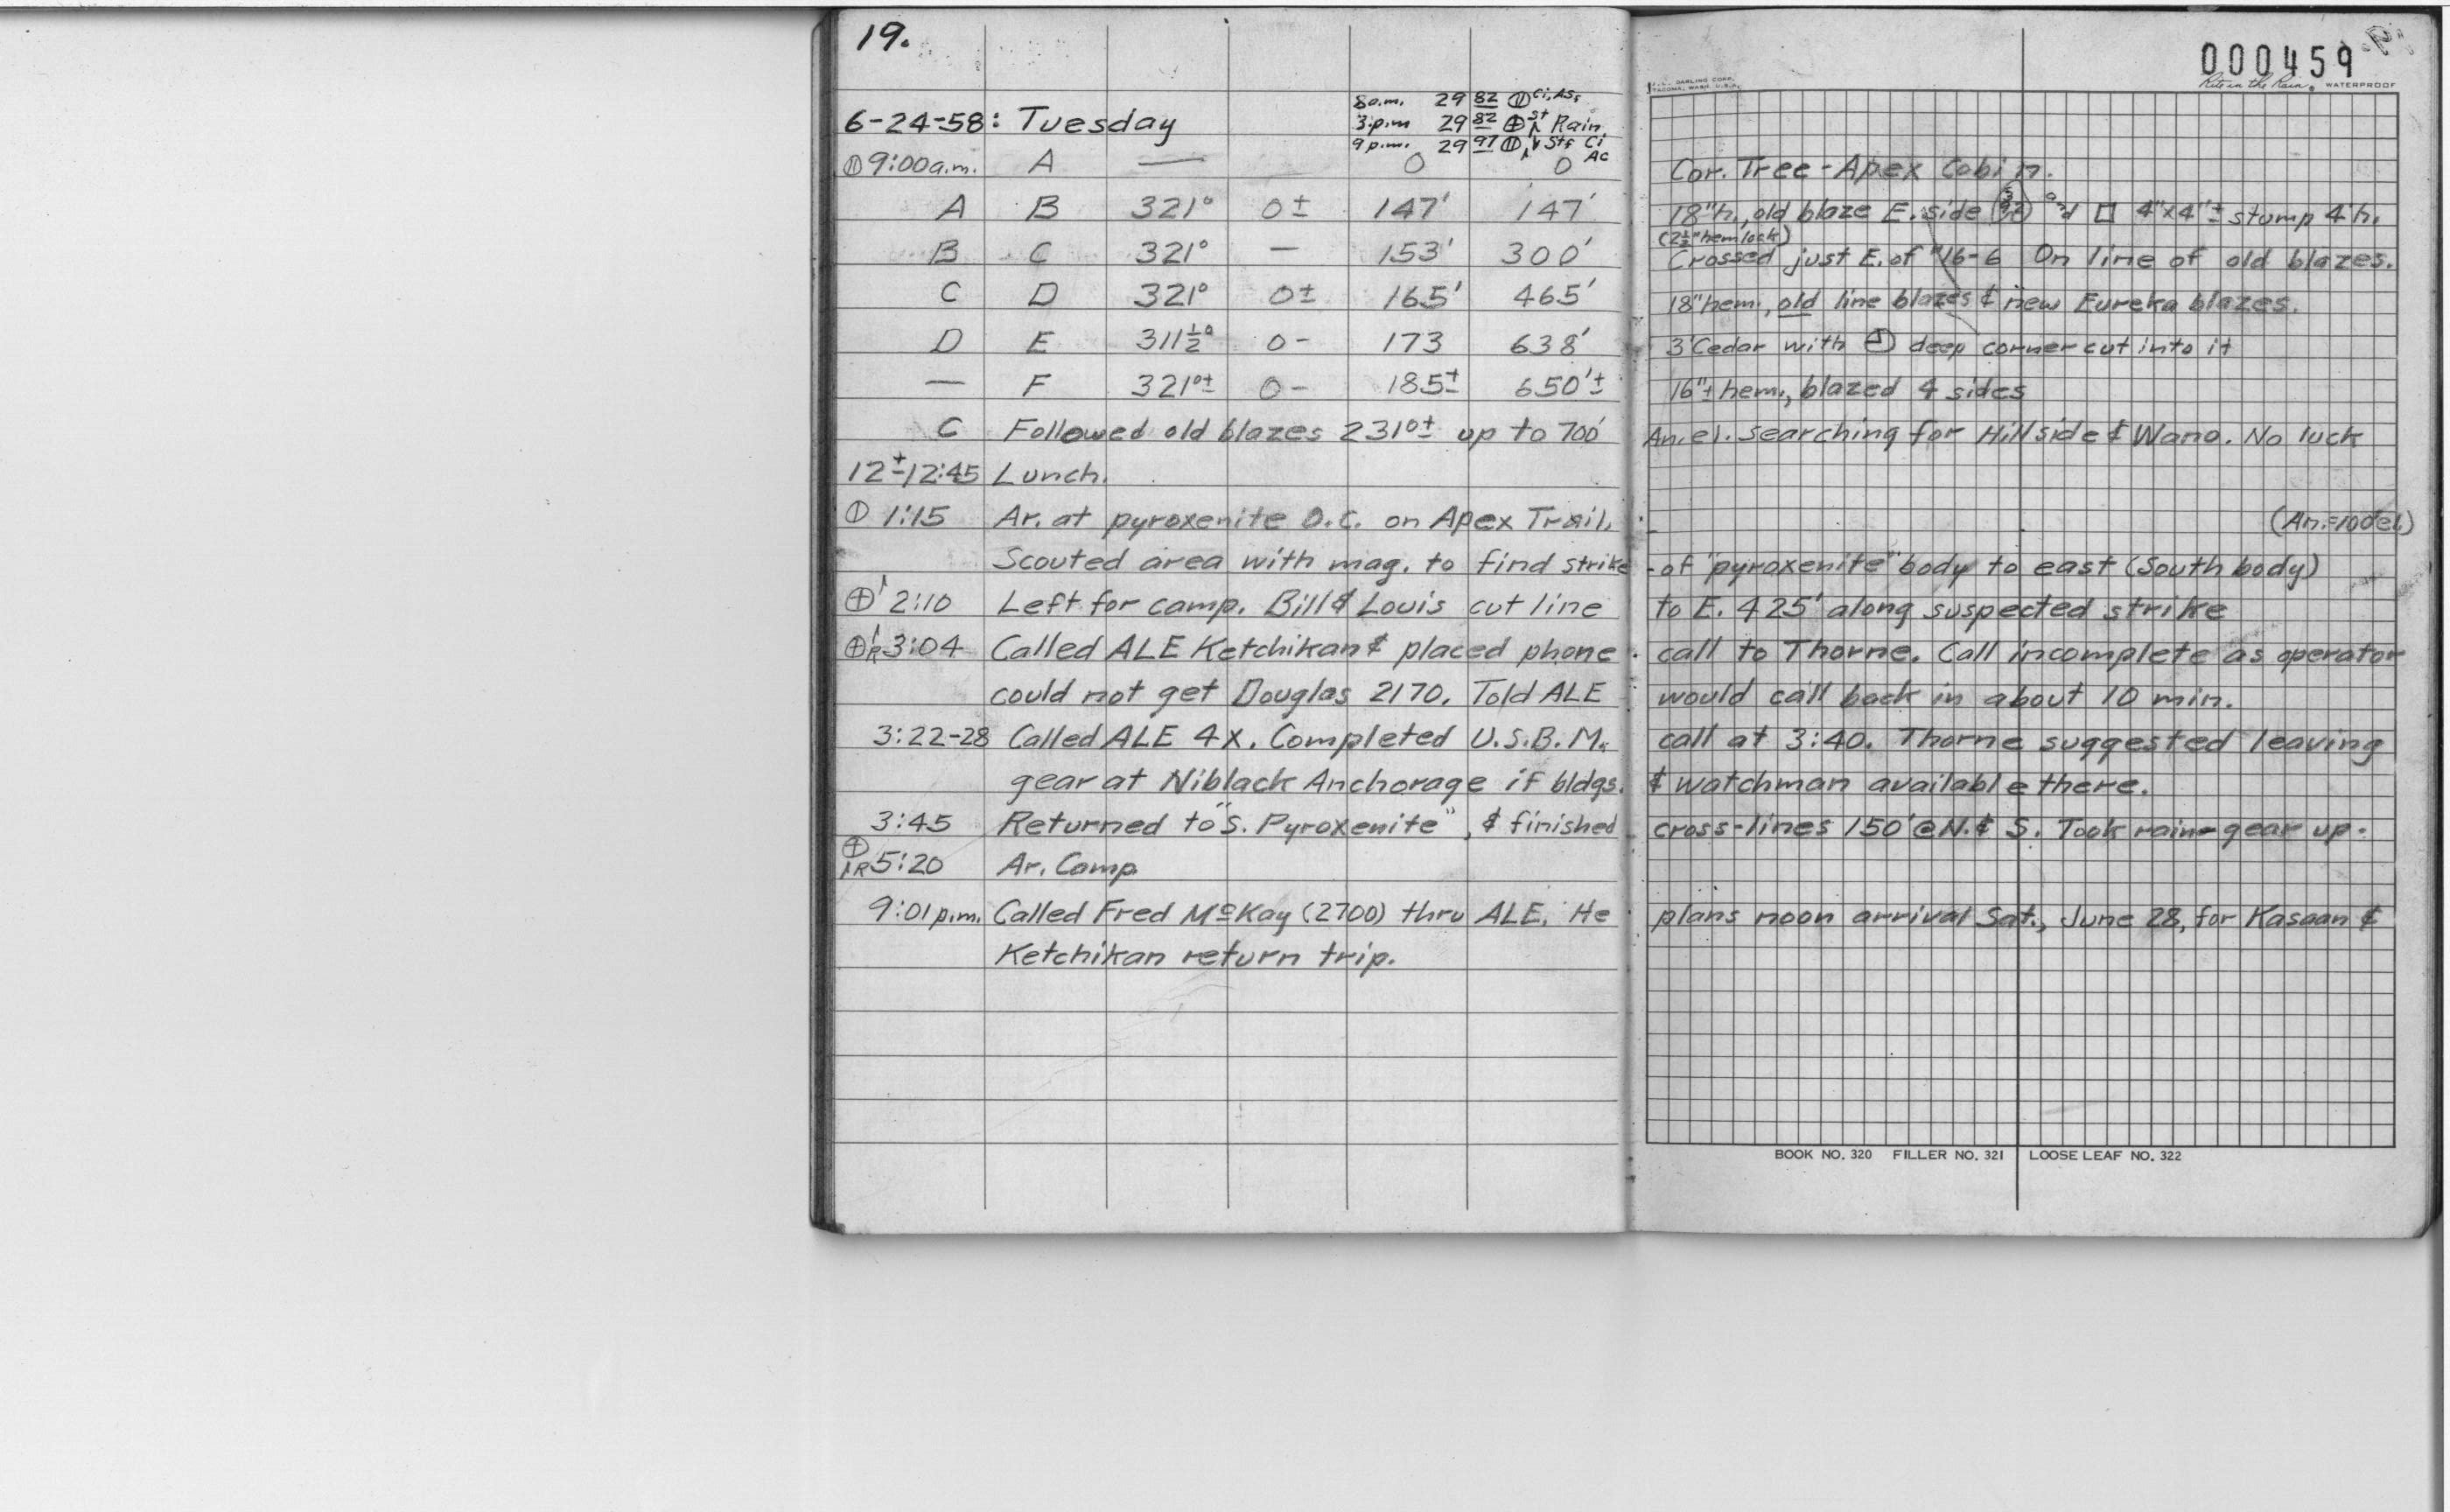 19.
000459
J. L. DARLING CORP.
TACOMA, WASH. U.S.A.
Rite in the Rain. WATERPROOF
8 a.m. 29 82 Ci, As,
6-24-58: Tuesday 3 p.m 29 82 ⊕ St Rain
9 p.m. 29 97 St, Ci Ac
9:00 a.m. A — 0 0 Cor. Tree - Apex Cabin.
A B 321° 0± 147' 147' 18"h., old blaze E. side and □ 4"x4"± stump 4'h.
(2½"hemlock)
B C 321° — 153' 300' Crossed just E. of "16-6 On line of old blazes.
C D 321° 0± 165' 465' 18"hem., old line blazes & new Eureka blazes.
D E 311½° 0- 173 638' 3'Cedar with deep corner cut into it
— F 321°± 0- 185± 650'± 16"± hem., blazed 4 sides
C Followed old blazes 231°± up to 700' An. el. searching for Hillside & Wano. No luck
12±-12:45 Lunch.
⦶ 1:15 Ar. at pyroxenite O.C. on Apex Trail. (An.=1000el.)
Scouted area with mag. to find strike - of "pyroxenite" body to east (South body)
⊕ 2:10 Left for camp. Bill & Louis cut line to E. 425' along suspected strike
⊕R 3:04 Called ALE Ketchikan & placed phone call to Thorne. Call incomplete as operator
could not get Douglas 2170. Told ALE would call back in about 10 min.
3:22-28 Called ALE 4x. Completed U.S.B.M. call at 3:40. Thorne suggested leaving
gear at Niblack Anchorage if bldgs. & watchman available there.
3:45 Returned to "S. Pyroxenite", & finished cross-lines 150' @ N. & S. Took rain-gear up.
⊕R 5:20 Ar. Camp
9:01 p.m. Called Fred McKay (2700) thru ALE. He plans noon arrival Sat., June 28, for Kasaan &
Ketchikan return trip.
BOOK NO. 320 FILLER NO. 321 LOOSE LEAF NO. 322